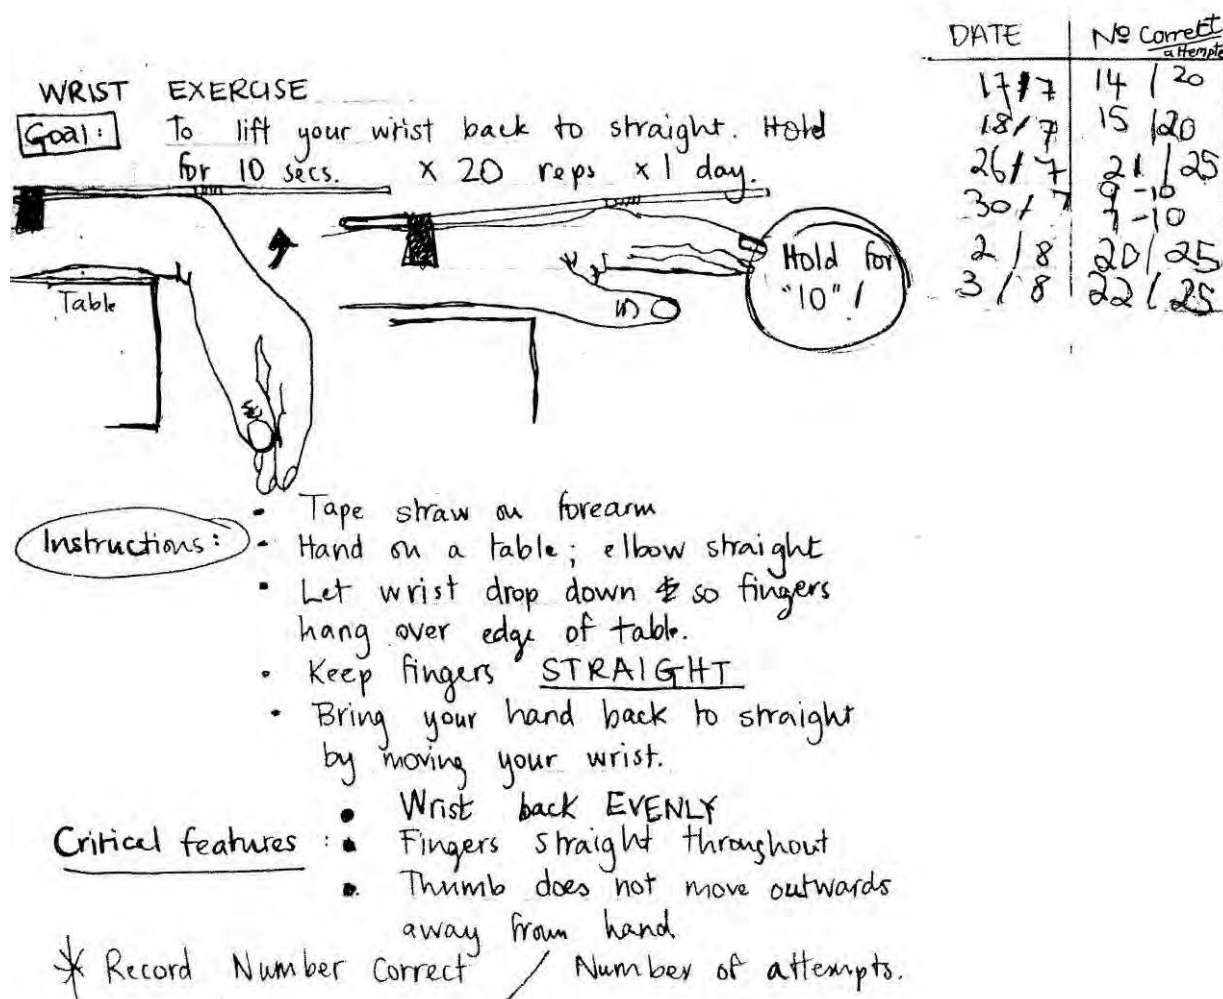 WRIST EXERCISE
Goal: To lift your wrist back to straight. Hold
for 10 secs. x 20 reps x 1 day.
Table
Hold for
"10" !
DATE | No Correct/attempte
17/7 | 14 / 20
18/7 | 15 /20
26/7 | 21 / 25
30/7 | 9 -10
7 -10
2/8 | 20/25
3/8 | 22/25
Instructions:
• Tape straw on forearm
• Hand on a table; elbow straight
• Let wrist drop down so fingers
hang over edge of table.
• Keep fingers STRAIGHT
• Bring your hand back to straight
by moving your wrist.
Critical features :
• Wrist back EVENLY
• Fingers straight throughout
• Thumb does not move outwards
away from hand
* Record Number Correct / Number of attempts.